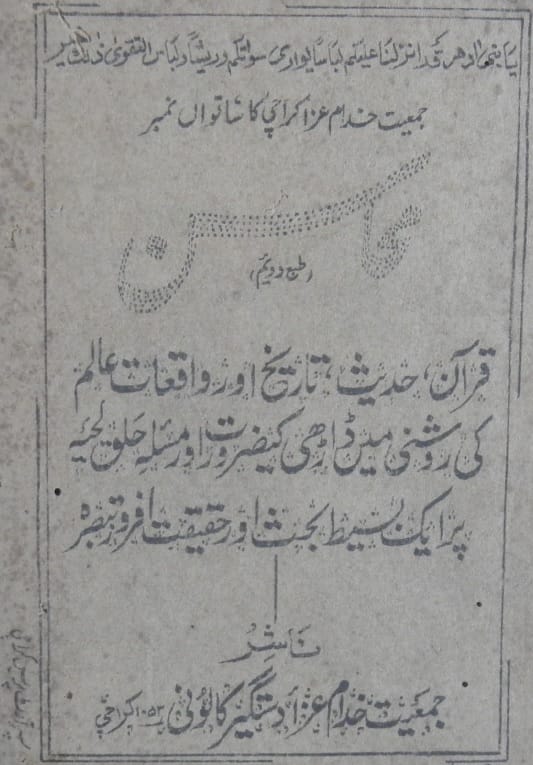 یٰبنی آدم قد انزلنا علیکم لباسا یواری سواتکم وریشا ولباس التقوی ذلک خیر
جمعیت خدام عزا کراچی کا ساتواں نمبر
محاسن
(طبع دویم)
قرآن، حدیث، تاریخ اور واقعات عالم
کی روشنی میں ڈاڑھی کیضرورت اور مسئلہ حلق لحیہ
پر ایک بسیط بحث اور حقیقت افروز تبصرہ
ناشر
جمعیت خدام عزا دستگیر کالونی ۱۰۵۳ کراچی